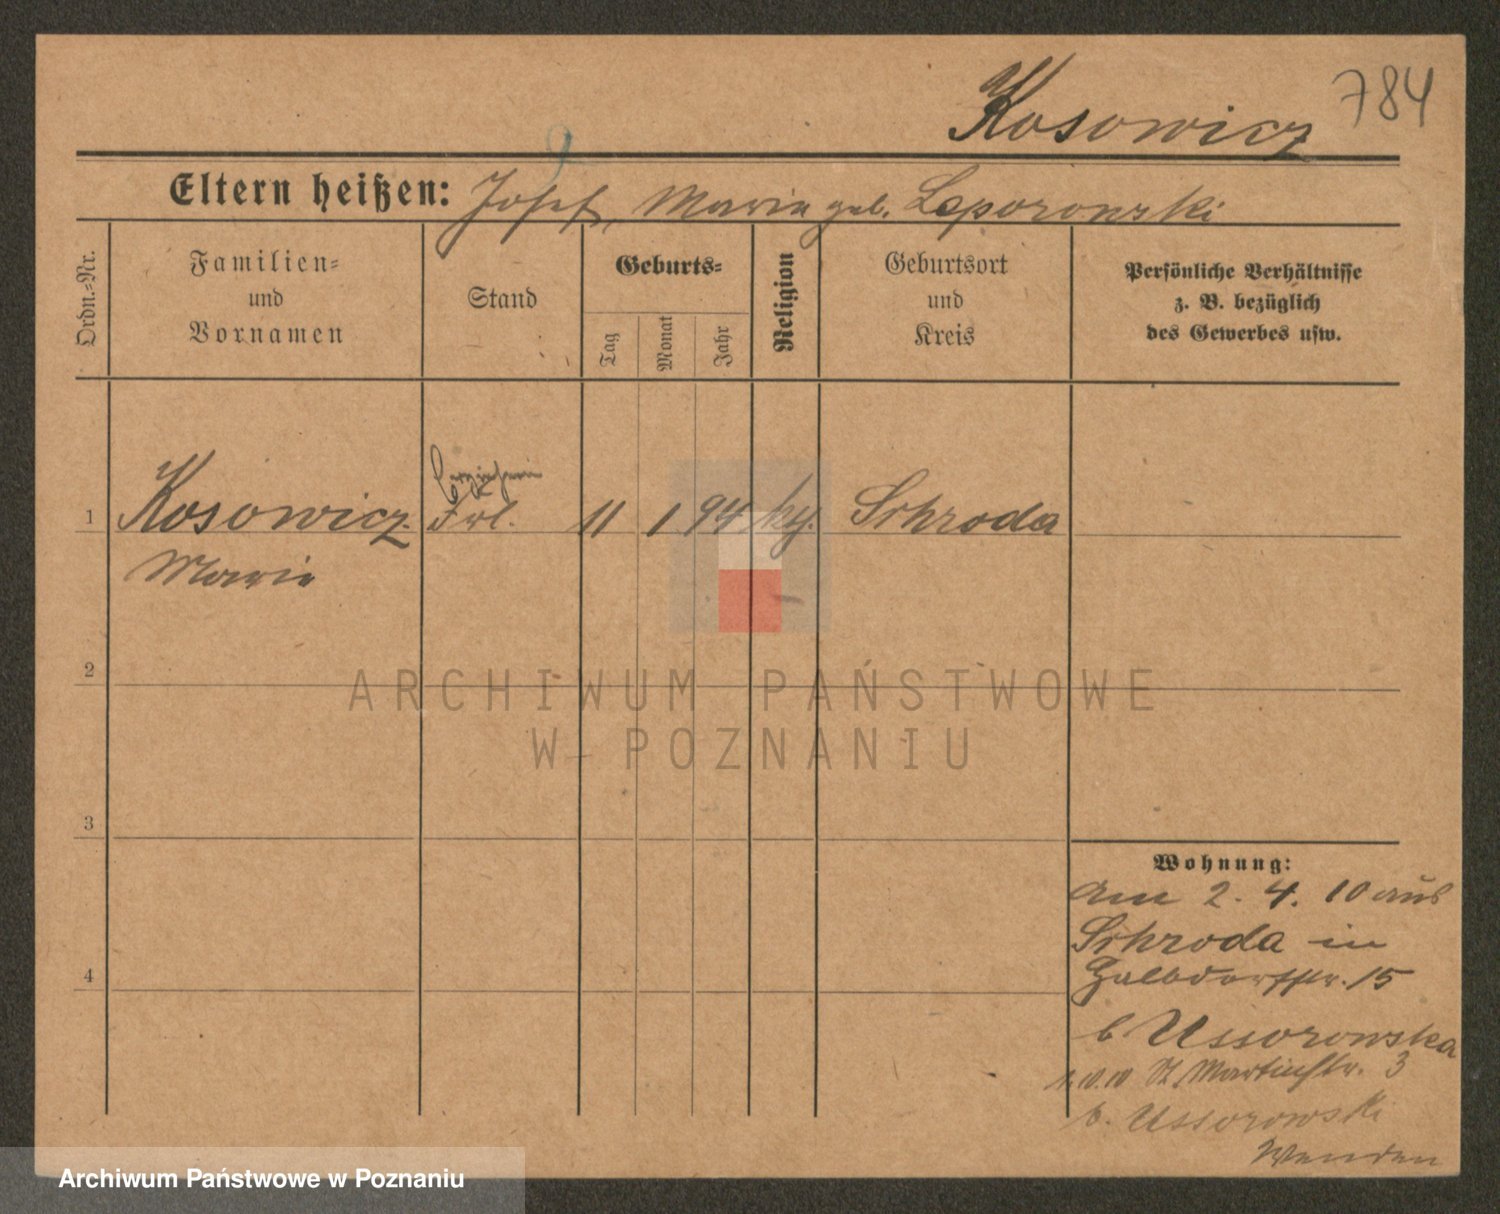 Kosowicz 784
Eltern heißen: Josef, Maria geb. Loporowski
Ordn.-Nr.
Familien-
und
Vornamen
Stand
Geburts-
Tag
Monat
Jahr
Religion
Geburtsort
und
Kreis
Persönliche Verhältnisse
z. B. bezüglich
des Gewerbes usw.
Erzieherin
1 Kosowicz Frl. 11 1 94 Schroda
Maria
2
3
4
Wohnung:
Am 2. 4. 10 aus
Schroda in
15
b Ussorowska
St Martinstr. 3
b. Ussorowski
Wenden
ARCHIWUM PAŃSTWOWE
W POZNANIU
Archiwum Państwowe w Poznaniu